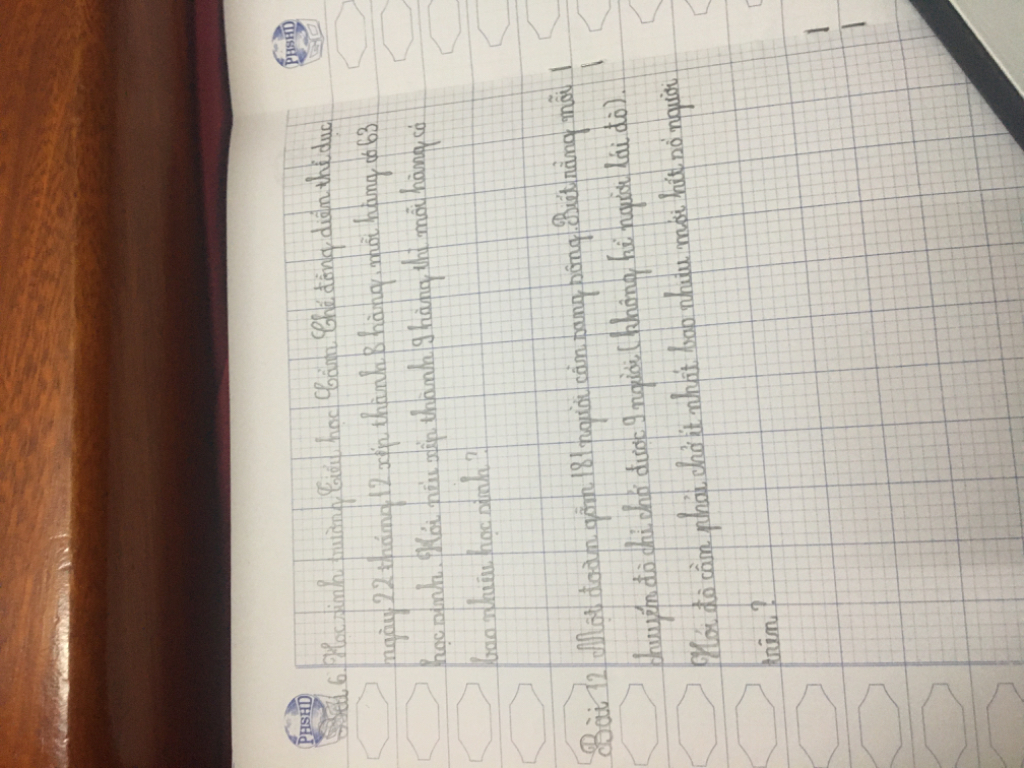 PHSHD
PHSHD
Bài 6 Học sinh trường Tiểu học Cẩm Chế đồng diễn thể dục
ngày 22 tháng 12 xếp thành 8 hàng, mỗi hàng có 63
học sinh. Hỏi nếu xếp thành 9 hàng thì mỗi hàng có
bao nhiêu học sinh?
Bài 12 Một đoàn gồm 181 người cần sang sông. Biết rằng mỗi
chuyến đò chỉ chở được 9 người (không kể người lái đò).
Hỏi đò cần phải chở ít nhất bao nhiêu mới hết số người
trên?